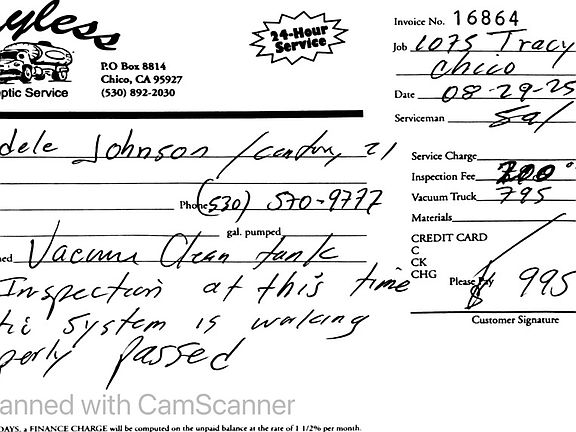 yless
24-Hour
Service
Invoice No. 16864
Job 1075 Tracy
Chico
P.O Box 8814
Chico, CA 95927
(530) 892-2030
eptic Service
Date 08-29-25
Serviceman Sal
dele Johnson / Century 21
Service Charge
Inspection Fee 200
Vacuum Truck 795
Materials
Phone (530) 570-9777
gal. pumped
CREDIT CARD
C
CK
CHG
Please Pay $ 995
Customer Signature
ed Vacuum Clean tank
Inspection at this time
tic System is working
perly passed
anned with CamScanner
DAYS, a FINANCE CHARGE will be computed on the unpaid balance at the rate of 1 1/2% per month.